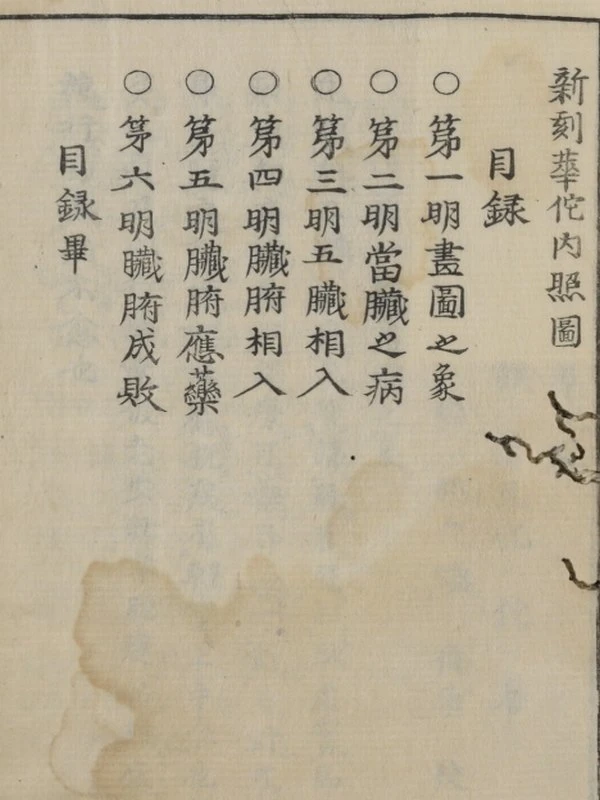 新刻華佗内照圖
目録
○第一明畫圖之象
○第二明當臓之病
○第三明五臓相入
○第四明臓腑相入
○第五明臓腑應藥
○第六明臓腑成敗
目録畢